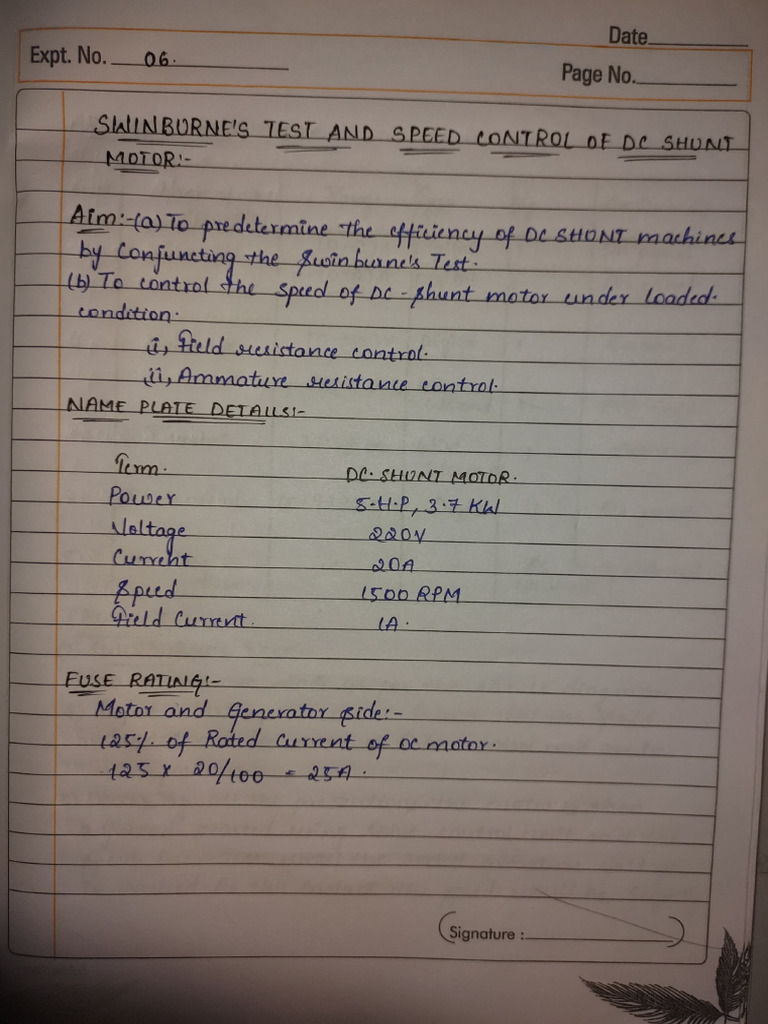 Date
Expt. No. 06.
Page No.
SWINBURNE'S TEST AND SPEED CONTROL OF DC SHUNT
MOTOR:-
Aim:-(a) To predetermine the efficiency of DC SHUNT machines
by Conjuncting the Swinburne's Test.
(b) To control the speed of DC-Shunt motor under loaded.
condition.
i, Field resistance control.
ii, Ammature resistance control.
NAME PLATE DETAILS:-
Term. DC. SHUNT MOTOR.
Power 5-H.P, 3.7 KW
Voltage 220V
Current 20A
Speed 1500 RPM
Field Current. 1A.
FUSE RATING:-
Motor and Generator Side:-
125% of Rated Current of DC motor.
125 x 20/100 = 25A.
Signature :